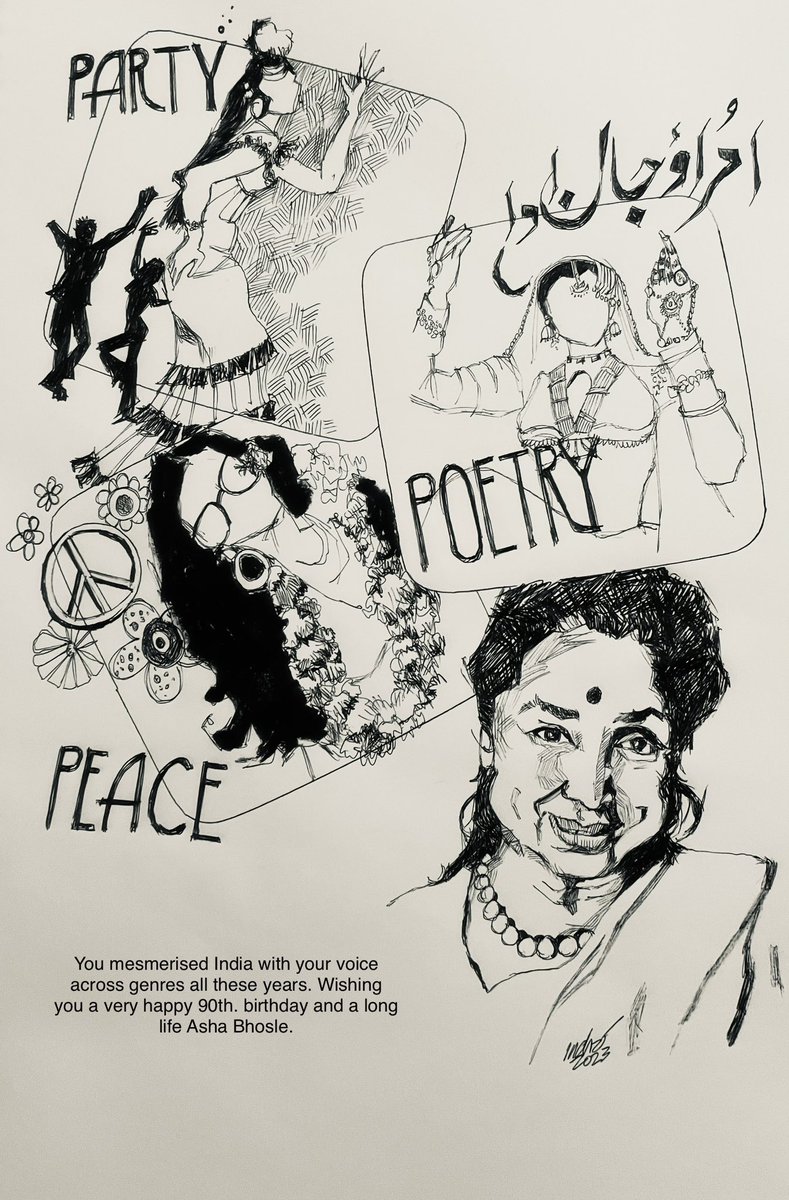 PARTY
اُمراؤ جان ادا
POETRY
PEACE
You mesmerised India with your voice
across genres all these years. Wishing
you a very happy 90th. birthday and a long
life Asha Bhosle.
2023